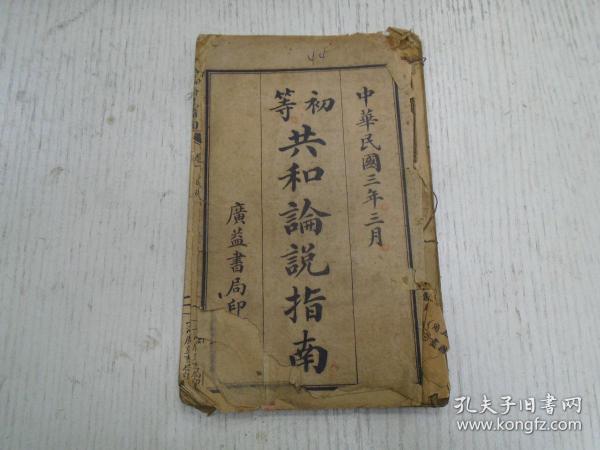 44
中華民國三年三月
初等
共和論説指南
廣益書局印
孔夫子旧书网
www.kongfz.com